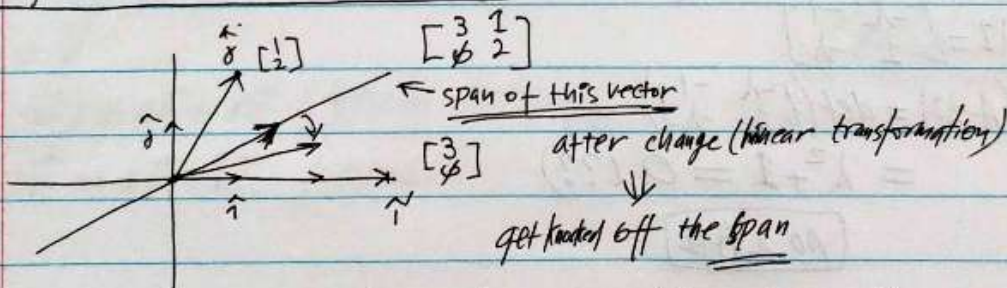 ĵ [1 2]
[3 1
ϕ 2]
← span of this vector
ĵ
after change (linear transformation)
[3 ϕ]
î
î
⇓
get knocked off the span